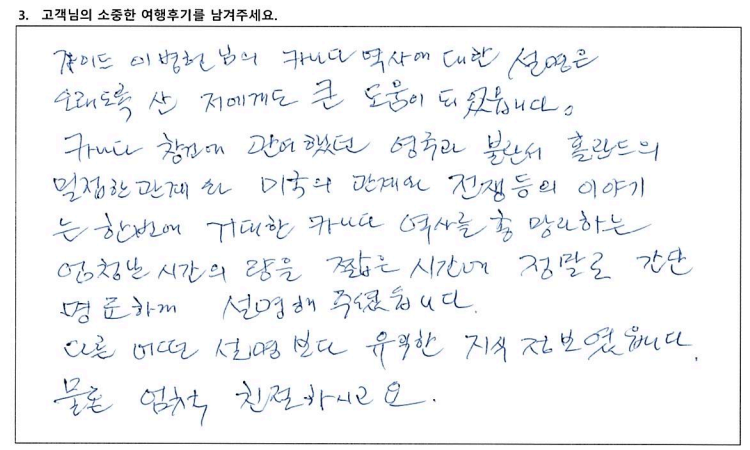 3. 고객님의 소중한 여행후기를 남겨주세요.
가이드 이병헌님의 카나다 역사에 대한 설명은
오래도록 산 저에게도 큰 도움이 되었읍니다.
카나다 창건에 관여했던 영국과 불란서 홀란드의
밀접한 관계와 미국의 관계와 전쟁등의 이야기
는 한번에 거대한 카나다 역사를 총 망라하는
엄청난 시간의 량을 짧은 시간에 정말로 간단
명료하게 설명해 주셨읍니다.
다른 어떤 설명보다 유익한 지식 정보였읍니다.
물론 엄청 친절하시고요.